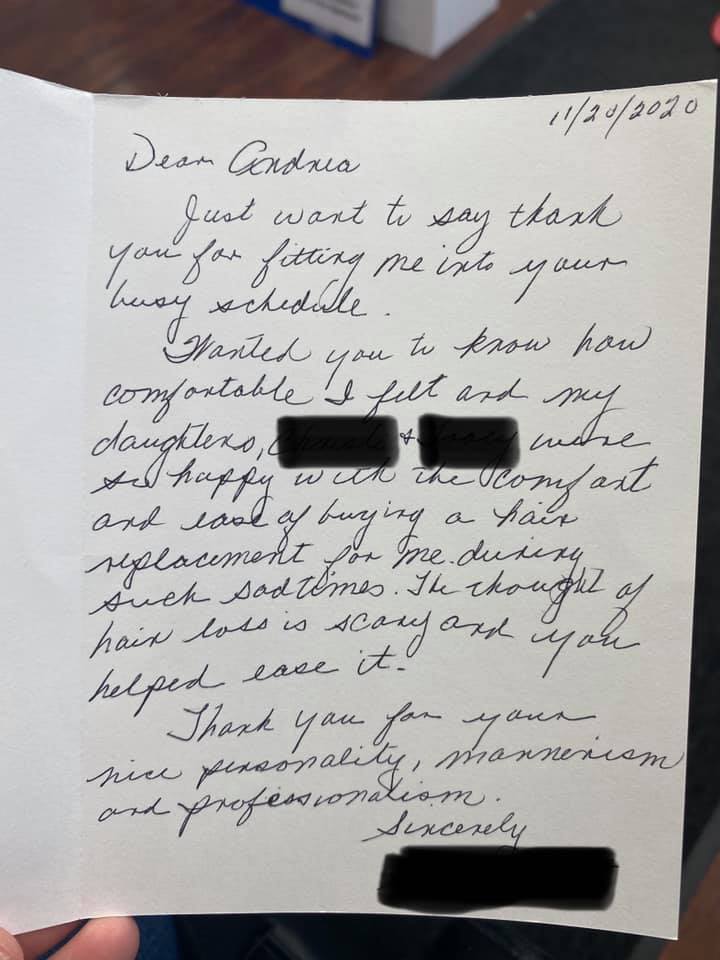 11/20/2020
Dear Andrea
Just want to say thank
you for fitting me into your
busy schedule.
Wanted you to know how
comfortable I felt and my
daughters, & were
so happy with the comfort
and ease of buying a hair
replacement for me during
such sad times. The thought of
hair loss is scary and you
helped ease it.
Thank you for your
nice personality, mannerism
and professionalism.
Sincerely